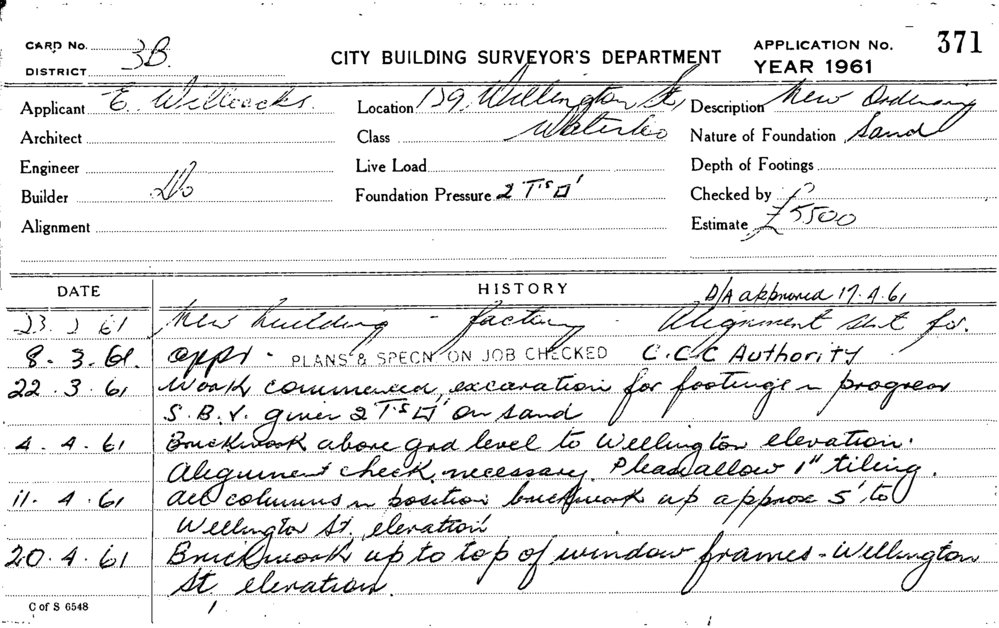 CARD No. 3B. CITY BUILDING SURVEYOR'S DEPARTMENT APPLICATION No. 371
DISTRICT YEAR 1961
Applicant E. Willcocks. Location 139, Wellington St, Description New Ordinary
Architect Class Waterloo Nature of Foundation Sand
Engineer Live Load Depth of Footings
Builder Do Foundation Pressure 2 T.s □' Checked by
Alignment Estimate £5500
DATE HISTORY D/A approved 17.4.61
23. 61 New building - factory - Alignment sent for.
8. 3. 61. appt. PLANS & SPECN ON JOB CHECKED C.C.C Authority
22. 3. 61 Work commenced, excavation for footings in progress
S.B.V. given 2 T.s □' on sand
4. 4. 61 Brickwork above grd level to Wellington elevation.
Alignment check necessary. Please allow 1" tiling.
11. 4. 61 All columns in position brickwork up approx 5' to
Wellington St, elevation
20. 4. 61 Brickwork up to top of window frames - Wellington
St, elevation.
C of S 6548